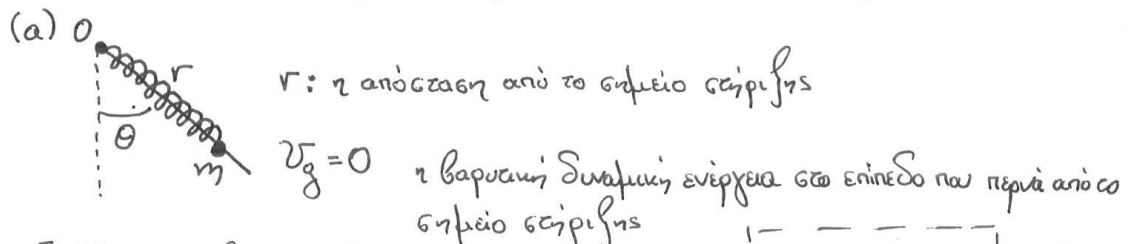 (α) O
r
θ
m
r : η απόσταση από το σημείο στήριξης
V_g = 0 η βαρυτική δυναμική ενέργεια στο επίπεδο που περνά από το
σημείο στήριξης